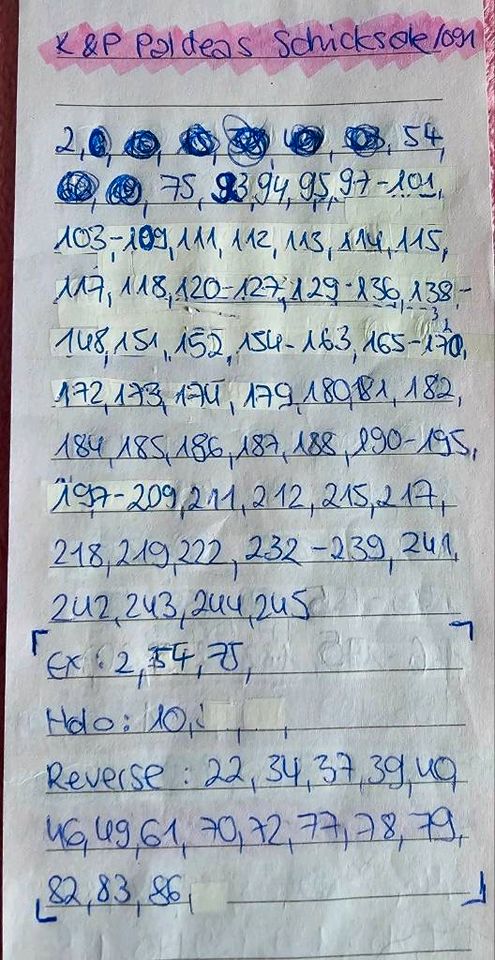 K&P Paldeas Schicksale/091
2, 54,
75, 93, 94, 95, 97-101,
103-109, 111, 112, 113, 114, 115,
117, 118, 120-127, 129-136, 138-
148, 151, 152, 154-163, 165-170,
172, 173, 174, 179, 180, 181, 182,
184, 185, 186, 187, 188, 190-195,
197-209, 211, 212, 215, 217,
218, 219, 222, 232-239, 241,
242, 243, 244, 245
Ex: 2, 54, 75,
Holo: 10,
Reverse: 22, 34, 37, 39, 40
46, 49, 61, 70, 72, 77, 78, 79,
82, 83, 86,